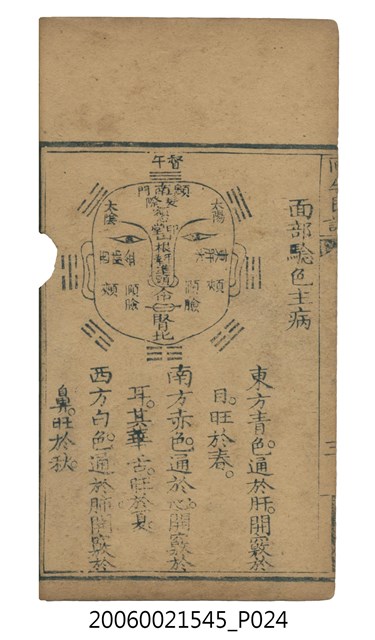 面部驗色主病
東方青色。通於肝。開竅於
目。旺於春。
南方赤色。通於心。開竅於
耳。其華舌。旺於夏。
西方白色。通於肺。開竅於
鼻。旺於秋。
午
督
太陽
太陰
門
南
額
山根
命
腎
北
頰
頰
頤
臉
三
20060021545_P024